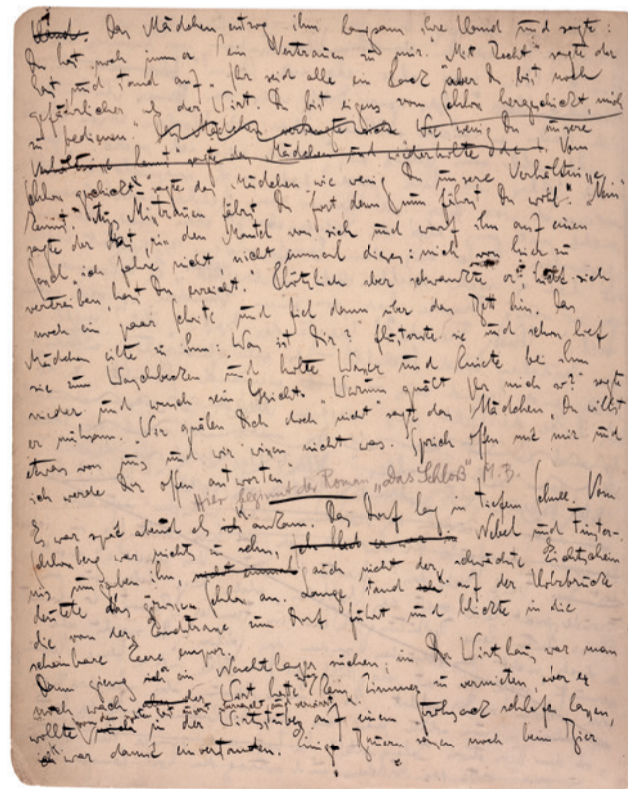 Hand. Das Mädchen entzog ihm langsam ihre Hand und sagte:
Du hast noch immer kein Vertrauen zu mir." "Mit Recht" sagte der
Gast und stand auf. "Ihr seid alle ein Pack aber Du bist noch
gefährlicher als der Wirt. Du bist eigens vom Schloss hergeschickt, mich
zu bedienen." Wie wenig Du unsere
Verhältnisse kennst" sagte das Mädchen und Vom
Schloss geschickt" sagte das Mädchen wie wenig Du unsere Verhältnisse
kennst. Aus Misstrauen fährst Du fort denn nun fährst Du wohl." "Nein"
sagte der Gast, riss den Mantel von sich und warf ihn auf einen
"ich fahre nicht, nicht einmal dieses: mich hier zu
vertreiben, hast Du erreicht." Plötzlich aber schwankte er, hielt sich
noch ein paar Schritte und fiel dann über das Bett hin. Das
Mädchen eilte zu ihm: Was ist Dir? flüsterte sie und schon lief
sie zum Waschbecken und holte Wasser und kniete bei ihm
nieder und wusch sein Gesicht. "Warum quält Ihr mich so?" sagte
er mühsam. "Wir quälen Dich doch nicht" sagte das Mädchen, "Du willst
etwas von uns und wir wissen nicht was. Sprich offen mit mir und
ich werde Dir offen antworten"
Hier beginnt der Roman „Das Schloß" M.B.
Es war spät abend als ich ankam. Das Dorf lag in tiefem Schnee. Vom
Schlossberg war nichts zu sehn, Nebel und Finster-
nis umgaben ihn, nicht einmal auch nicht der schwächste Lichtschein
deutete das grosse Schloss an. Lange stand ich auf der Holzbrücke
die von der Landstrasse zum Dorf führt und blickte in die
scheinbare Leere empor.
Dann gieng ich ein Nachtlager suchen; im Wirtshaus war man
noch wach der Wirt hatte zwar kein Zimmer zu vermieten, aber er
wollte von dem späten Gast äusserst überrascht und verwirrt mich in der Wirtsstube auf einem Strohsack schlafen lassen,
ich war damit einverstanden. Einige Bauern waren noch beim Bier